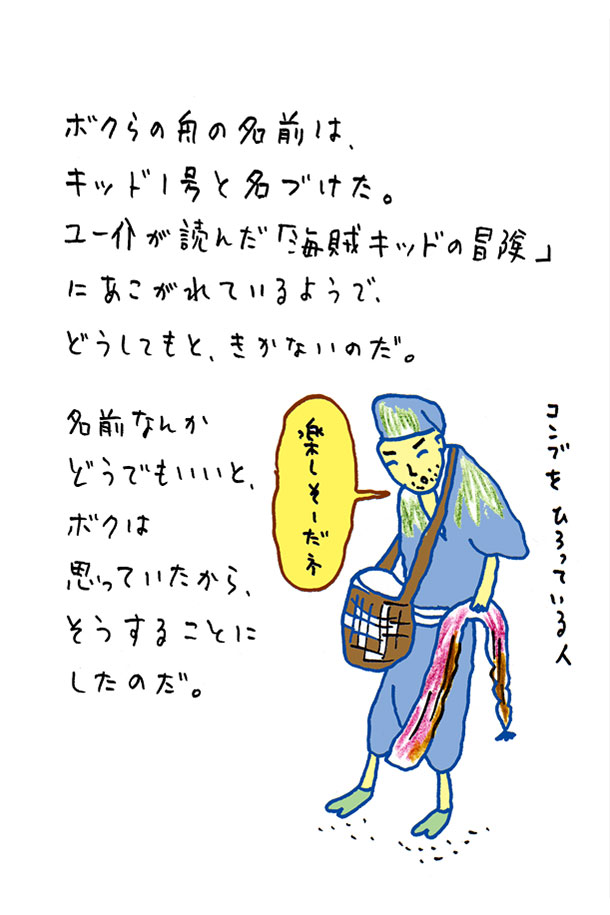 ボクらの舟の名前は、
キッド1号と名づけた。
ユー介が読んだ「海賊キッドの冒険」
にあこがれているようで、
どうしてもと、きかないのだ。
名前なんか
どうでもいいと、
ボクは
思っていたから、
そうすることに
したのだ。
楽しそーだネ
コンブをひろっている人